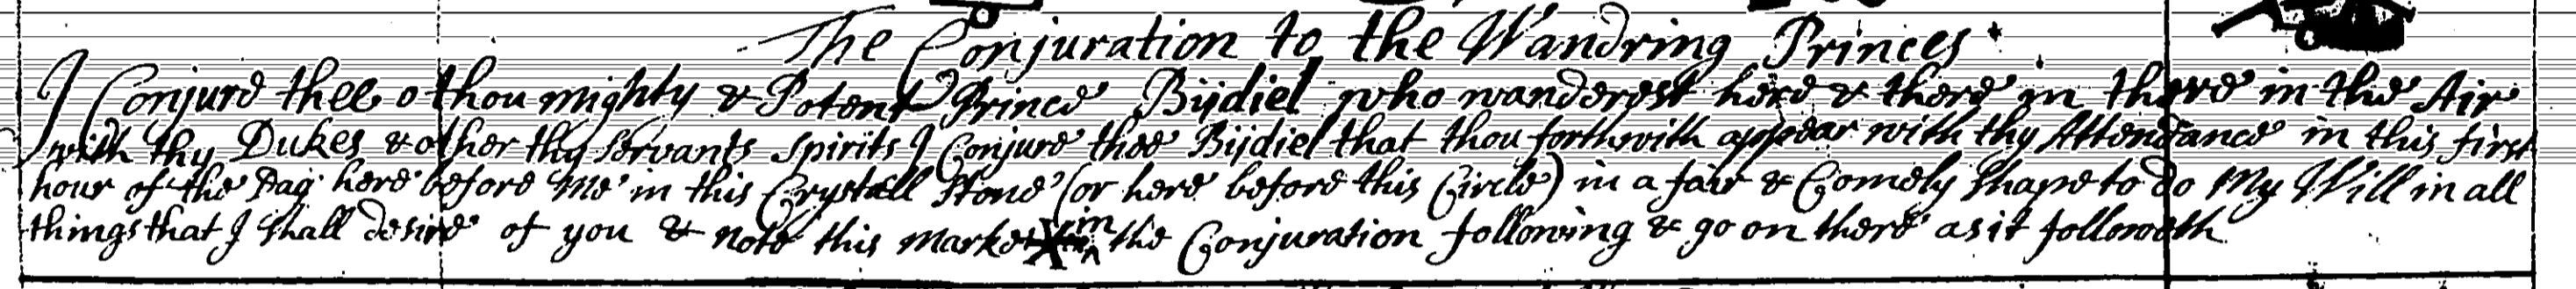 The Conjuration to the Wandring Princes
I Conjure thee o thou mighty & Potent Prince Bijdiel who wanderest here & there in there in the Air
with thy Dukes & other thy servants spirits I Conjure thee Bijdiel that thou forthwith appear with thy Attendance in this first
hour of the Day here before Me in this Crystall Stone (or here before this Circle) in a fair & Comely shape to do My Will in all
things that I shall desire of you & note this marke X in the Conjuration following & go on there as it followeth